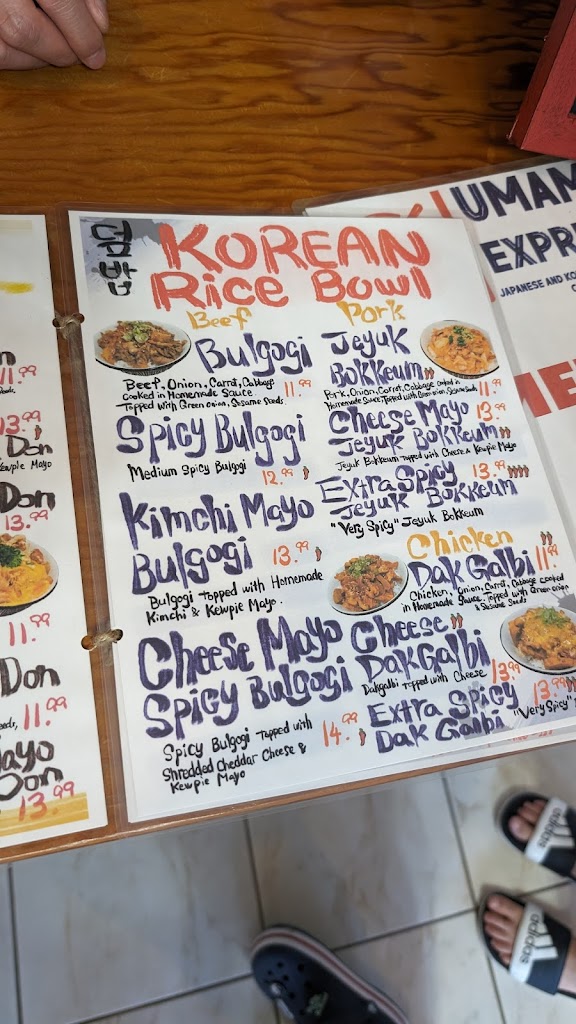 덮밥
KOREAN
Rice Bowl
Beef
Bulgogi
Beef, Onion, Carrot, Cabbage
cooked in Homemade Sauce
Topped with Green onion, Sesame Seeds
11.99
Spicy Bulgogi
Medium Spicy Bulgogi
12.99
Kimchi Mayo
Bulgogi
13.99
Bulgogi topped with Homemade
Kimchi & Kewpie Mayo.
Cheese Mayo
Spicy Bulgogi
Spicy Bulgogi topped with
Shredded Cheddar Cheese &
Kewpie Mayo
14.99
Pork
Jeyuk
Bokkeum
Pork, Onion, Carrot, Cabbage cooked in
Homemade Sauce, Topped with Green onion, Sesame Seeds
11.99
Cheese Mayo
Jeyuk Bokkeum
13.99
Jeyuk Bokkeum topped with Cheese & Kewpie Mayo
Extra Spicy
Jeyuk Bokkeum
13.99
"Very Spicy" Jeyuk Bokkeum
Chicken
Dak Galbi
11.99
Chicken, Onion, Carrot, Cabbage cooked
in Homemade Sauce. Topped with Green onion
& Sesame Seeds
Cheese
Dak Galbi
Dakgalbi topped with Cheese
13.99
Extra Spicy
Dak Galbi
13.99
"Very Spicy"
11.99
13.99
Don
Kewpie Mayo
Don
13.99
11.99
Don
11.99
Mayo
Don
13.99
UMAM
EXPR
JAPANESE AND KO
ME
adidas
adidas